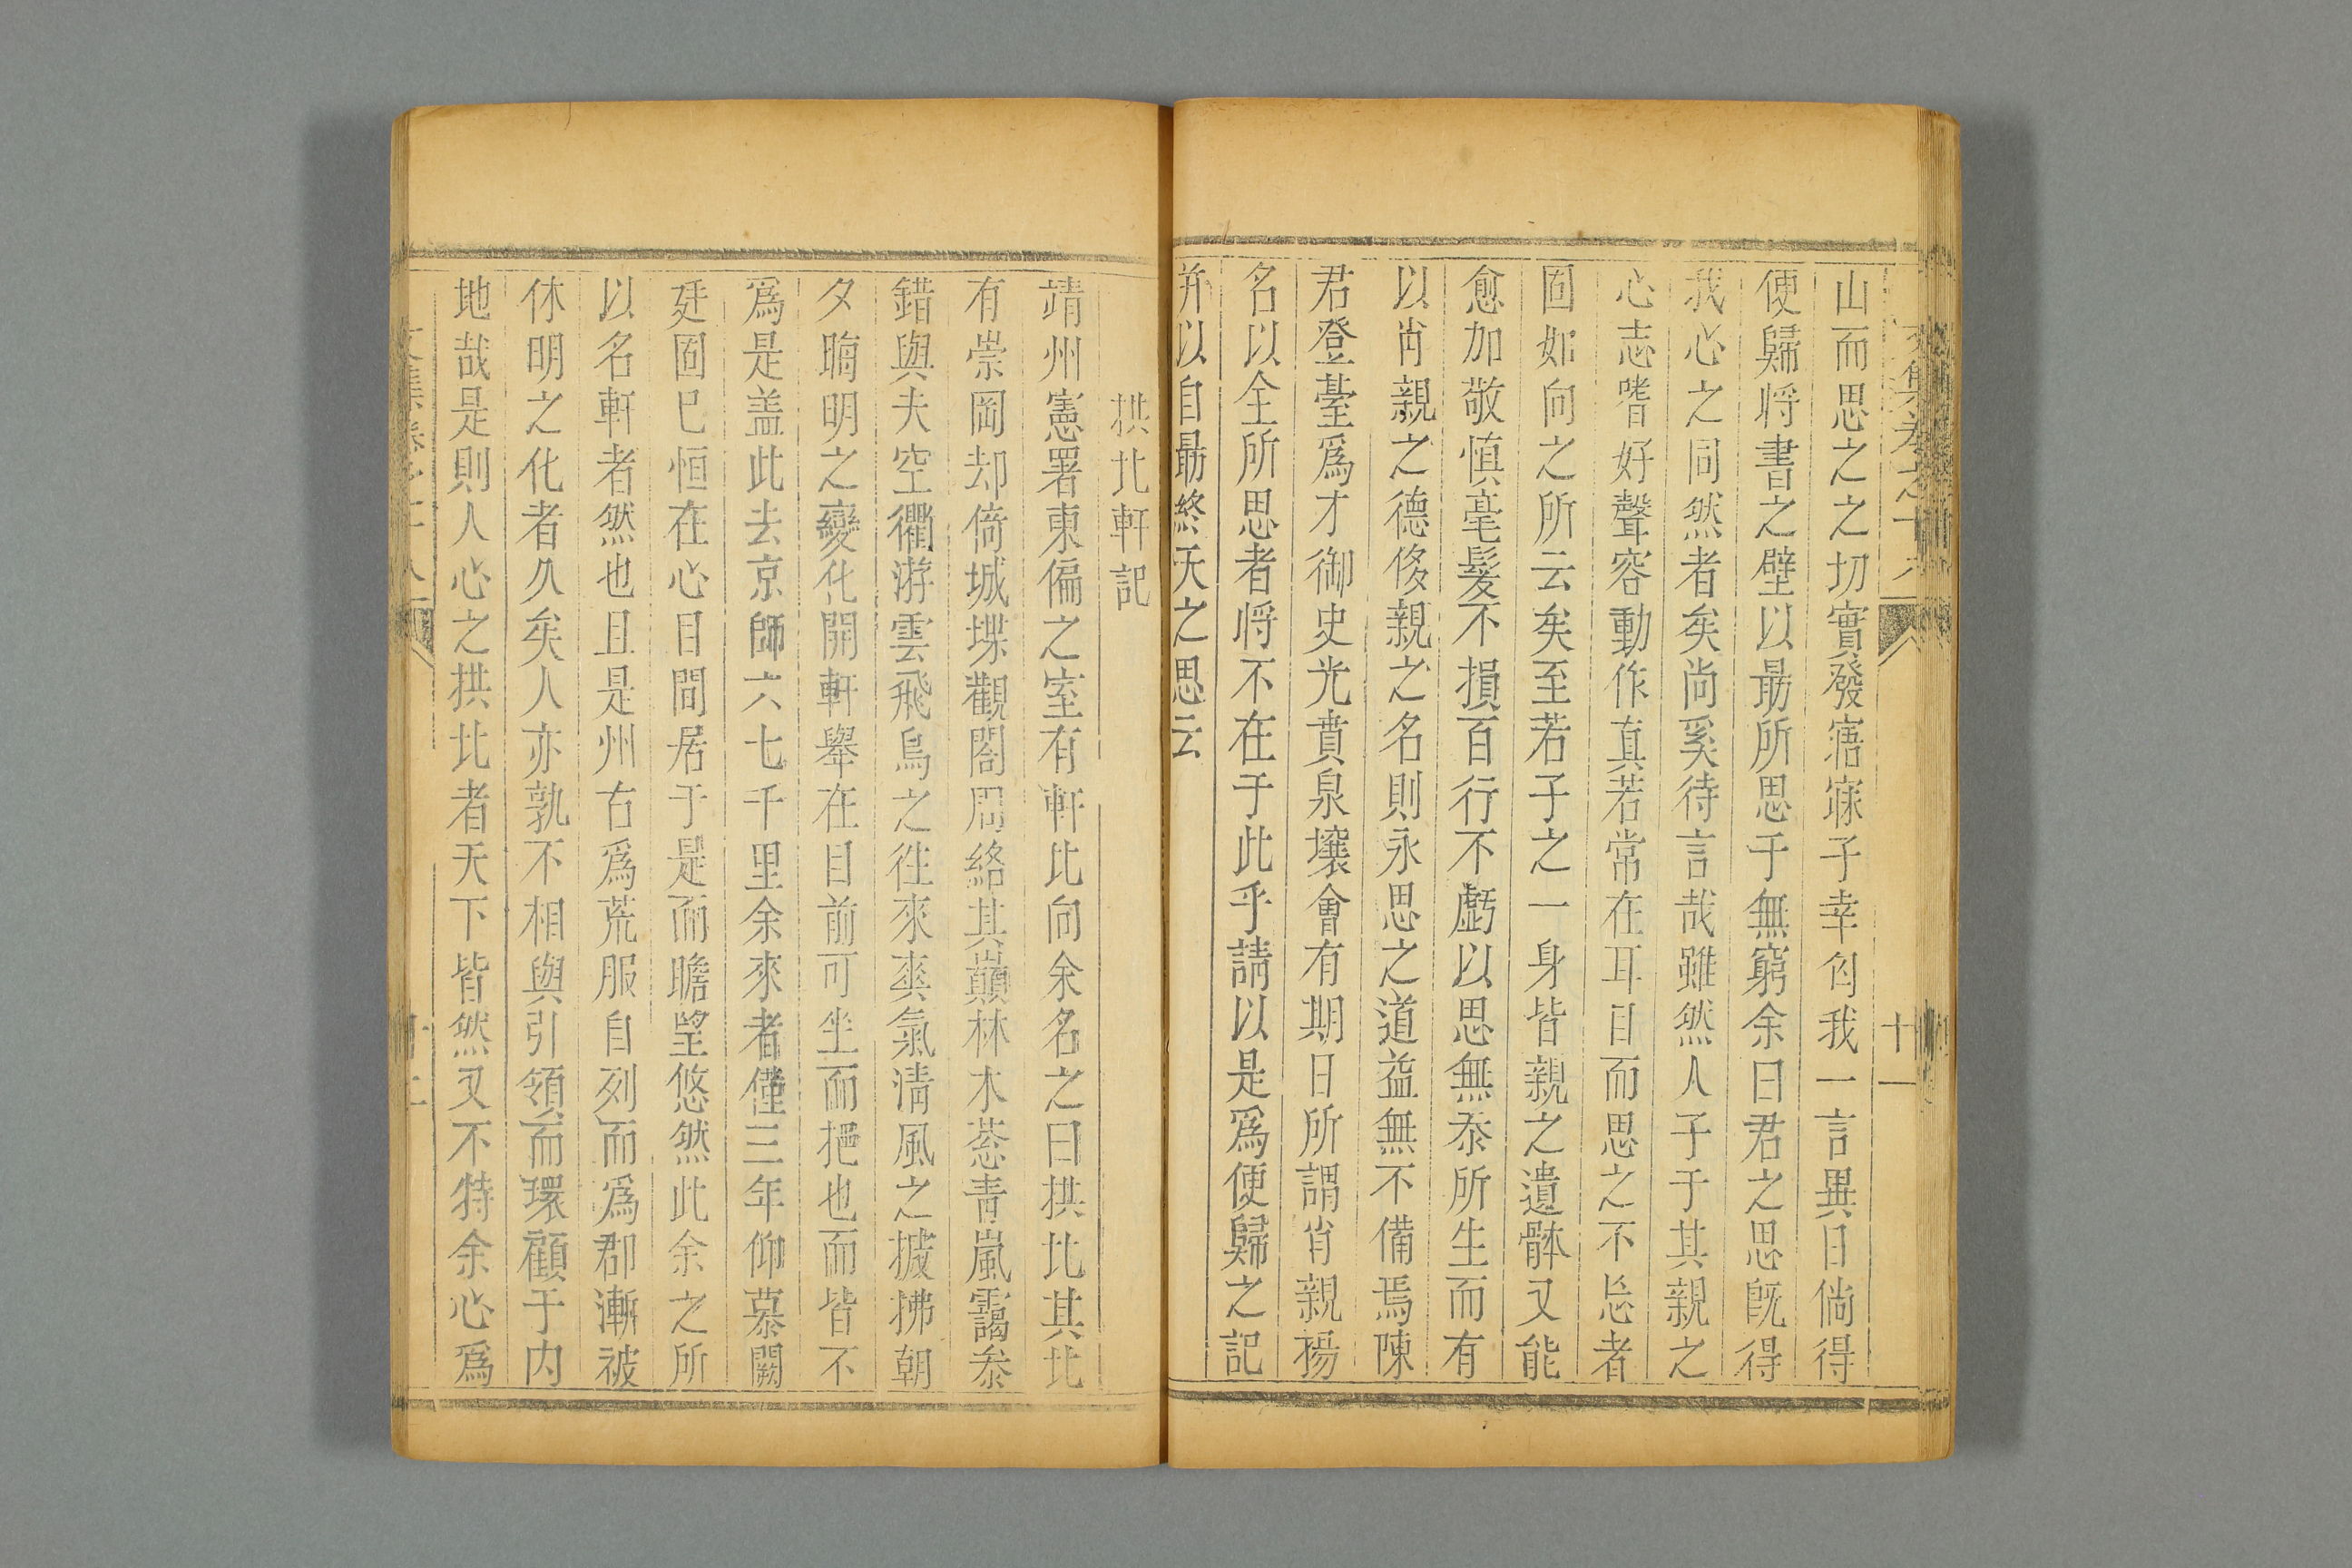 山而思之之切實發寤寐子幸匄我一言異日倘得
便歸將書之壁以最所思于無窮余曰君之思旣得
我心之同然者矣尚奚待言哉雖然人子于其親之
心志嗜好聲容動作真若常在耳目而思之不忘者
固如向之所云矣至若子之一身皆親之遺骵又能
愈加敬慎毫髮不損百行不虧以思無忝所生而有
以肖親之德侈親之名則永思之道益無不備焉陳
君登臺爲才御史光賁泉壤會有期日所謂肖親揚
名以全所思者將不在于此乎請以是爲便歸之記
并以自最終天之思云
十一
拱北軒記
靖州憲署東偏之室有軒北向余名之曰拱北其北
有崇岡却倚城堞觀閣周絡其巔林木葱青嵐靄叅
錯與夫空衢游雲飛鳥之徃來爽氣清風之披拂朝
夕晦明之變化開軒舉在目前可坐而挹也而皆不
爲是盖此去京師六七千里余來者僅三年仰慕闕
廷固已恒在心目間居于是而瞻望悠然此余之所
以名軒者然也且是州古爲荒服自列而爲郡漸被
休明之化者久矣人亦孰不相與引領而環顧于内
地哉是則人心之拱北者天下皆然又不特余心爲